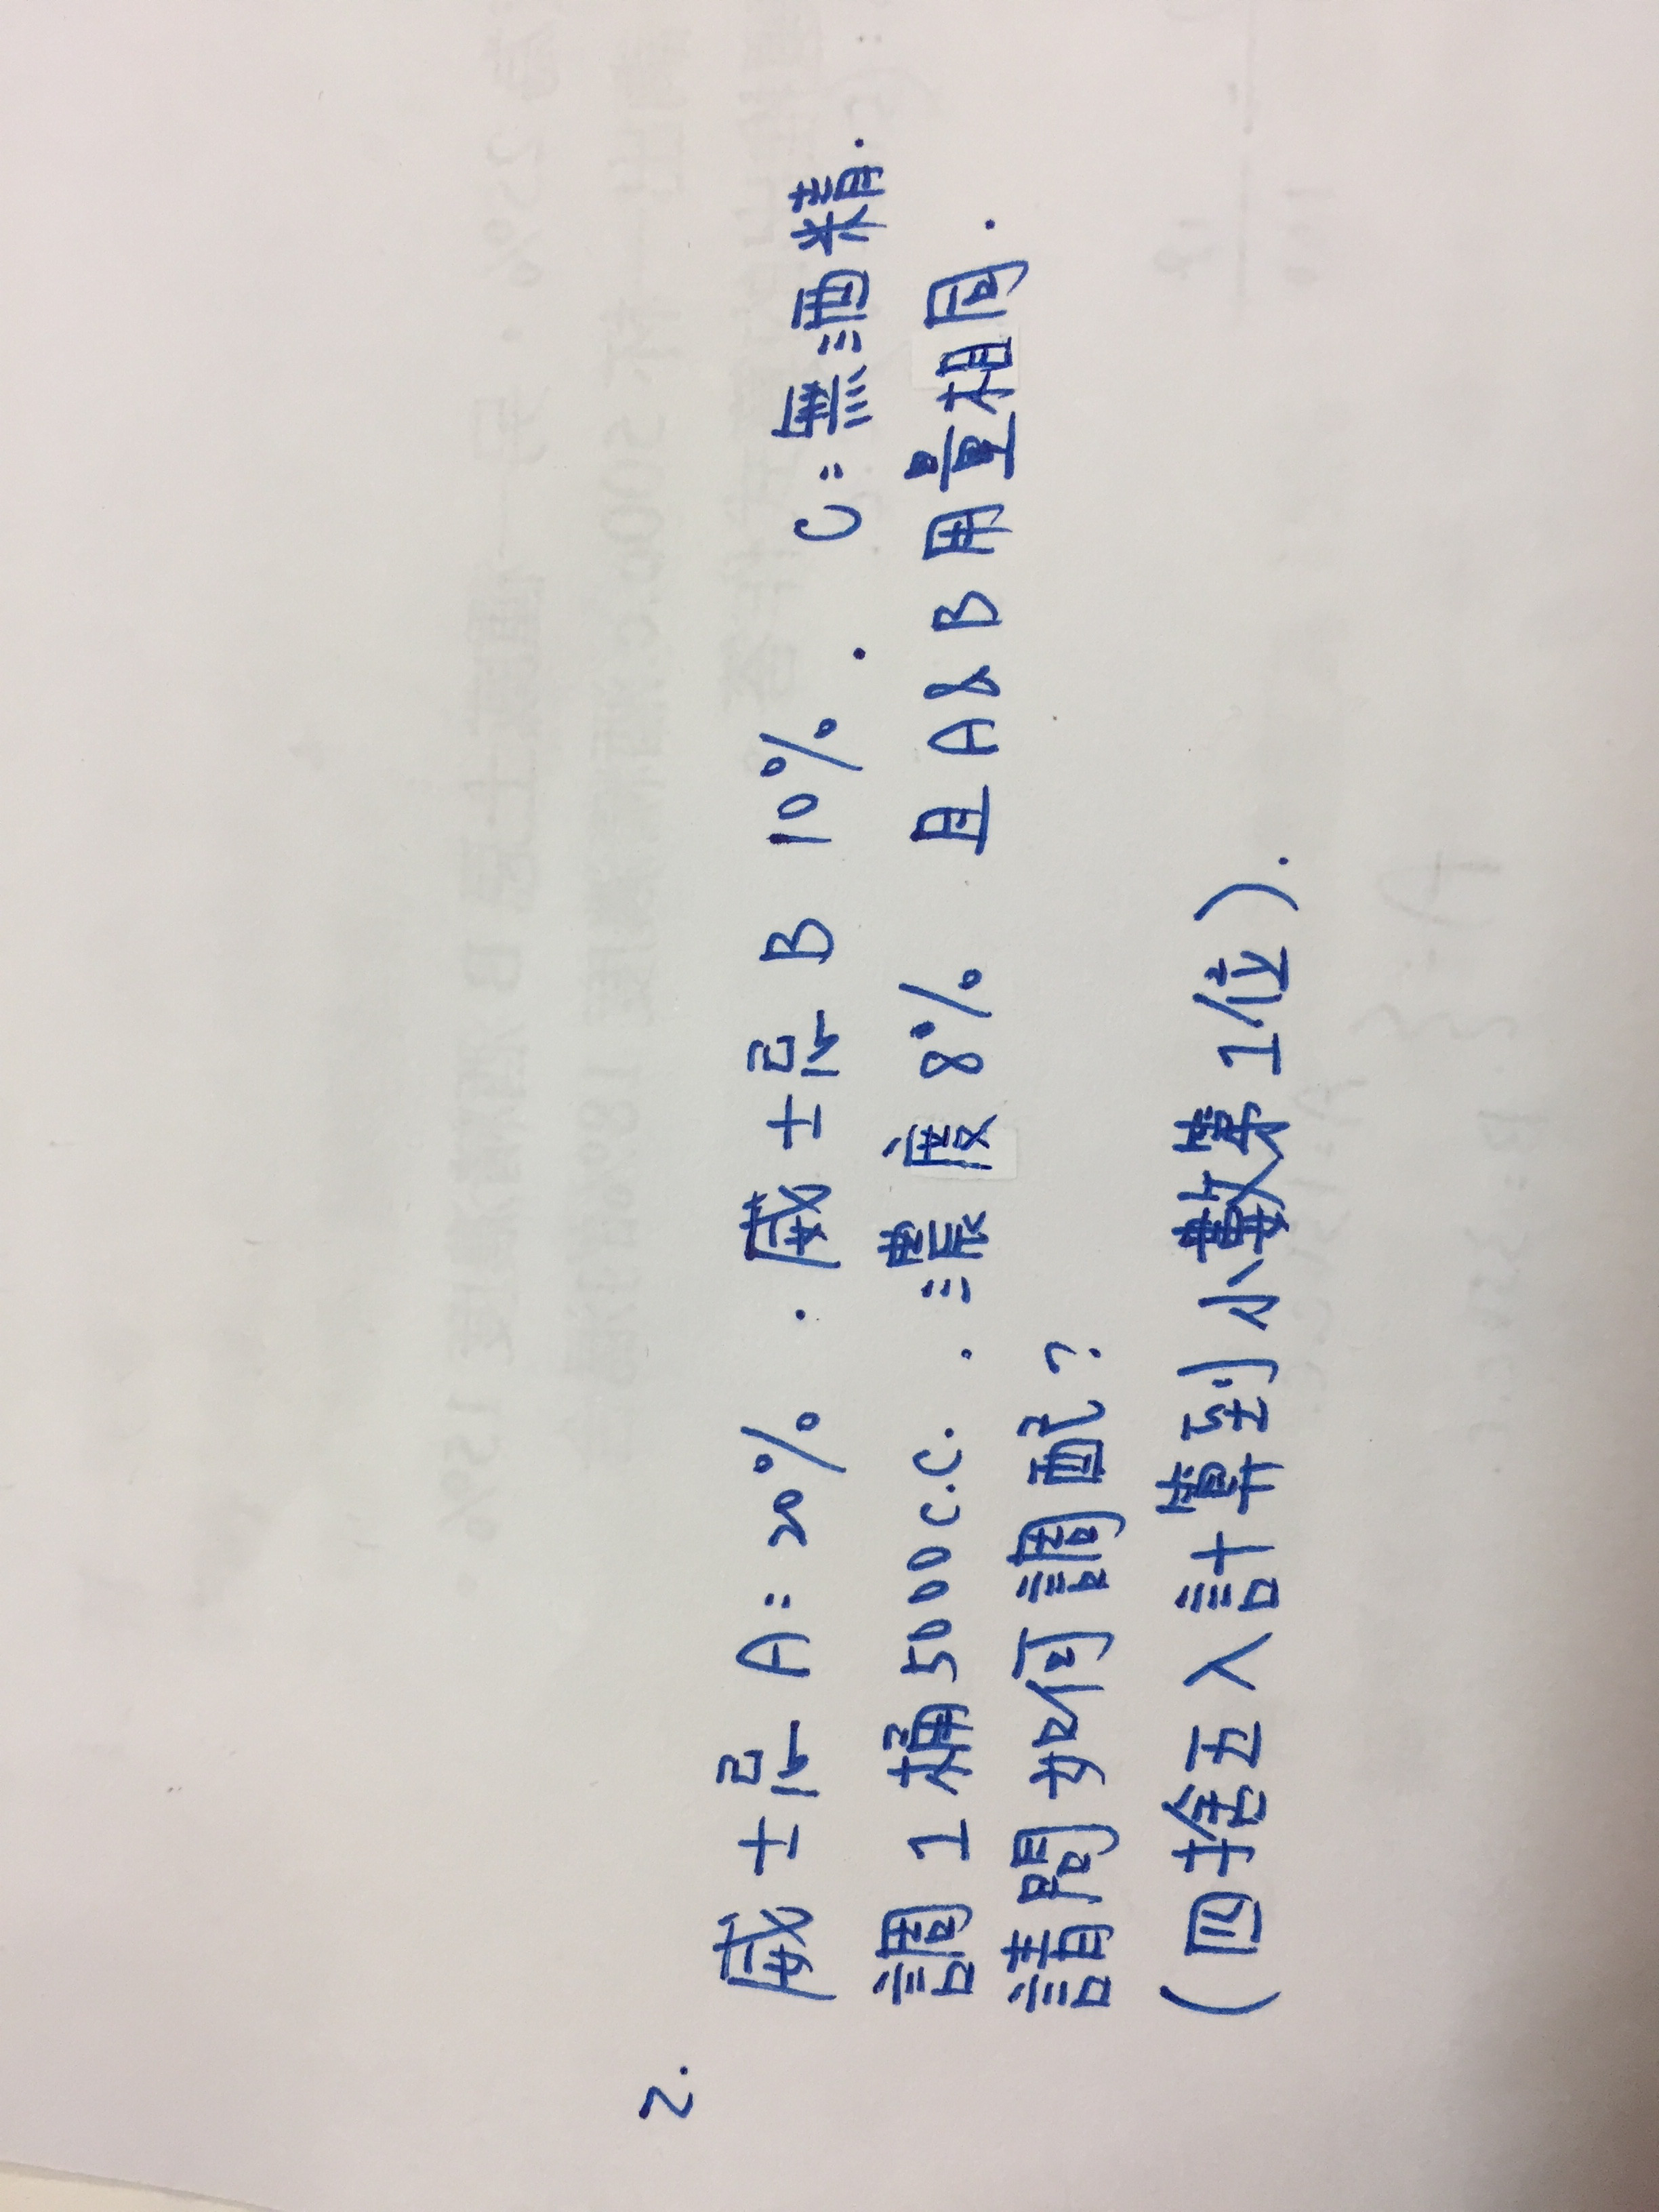 2.
威士忌 A: 20%. 威士忌 B 10%. C: 無酒精.
調1桶5000c.c. . 濃度8% 且A&B用量相同.
請問如何調配?
(四捨五入計算到小數第1位).